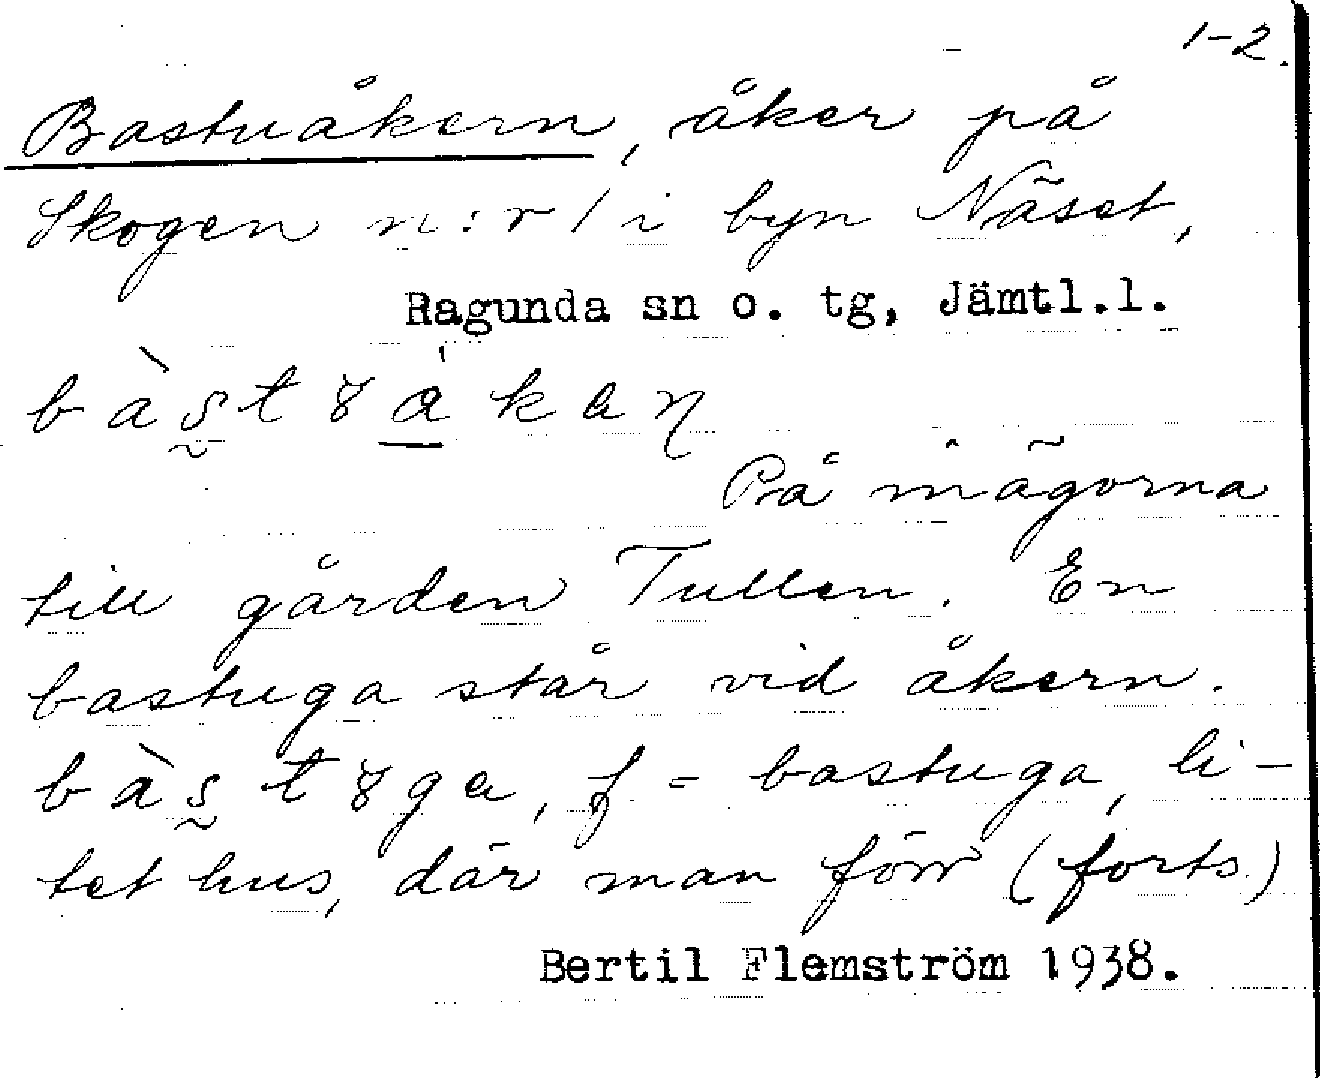 1-2.
Bastuåkern, åker på
Skogen n:r 1 i byn Näset,
Ragunda sn o. tg, Jämtl.l.
På inägorna
till gården Tullen. En
bastuga står vid åkern.
f = bastuga, li-
tet hus, där man förr (forts.)
Bertil Flemström 1938.